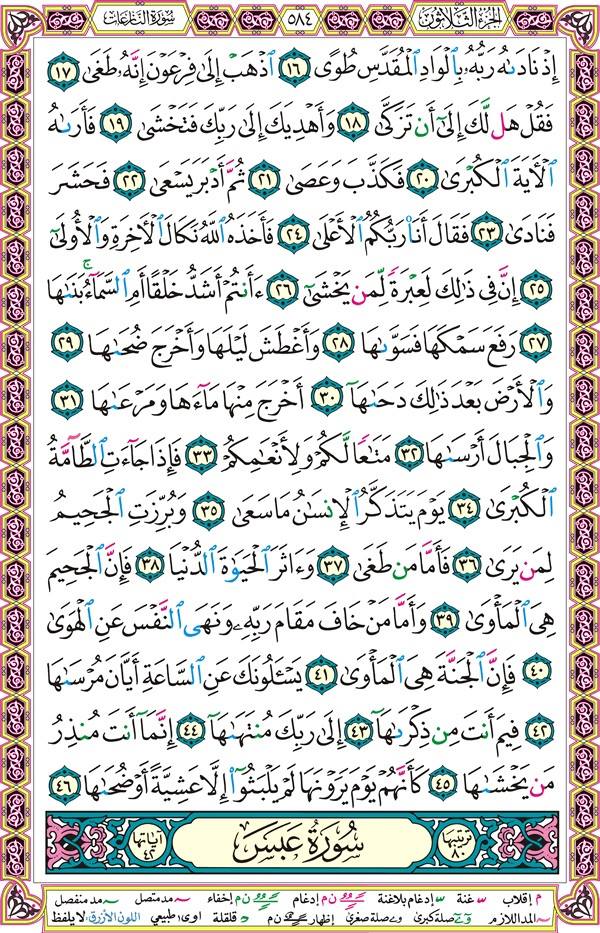 الجزء الثلاثون ٥٨٤ سورة النازعات
إِذْ نَادَىٰهُ رَبُّهُۥ بِٱلْوَادِ ٱلْمُقَدَّسِ طُوًى ١٦ ٱذْهَبْ إِلَىٰ فِرْعَوْنَ إِنَّهُۥ طَغَىٰ ١٧
فَقُلْ هَل لَّكَ إِلَىٰٓ أَن تَزَكَّىٰ ١٨ وَأَهْدِيَكَ إِلَىٰ رَبِّكَ فَتَخْشَىٰ ١٩ فَأَرَىٰهُ
ٱلْأٓيَةَ ٱلْكُبْرَىٰ ٢٠ فَكَذَّبَ وَعَصَىٰ ٢١ ثُمَّ أَدْبَرَ يَسْعَىٰ ٢٢ فَحَشَرَ
فَنَادَىٰ ٢٣ فَقَالَ أَنَا۠ رَبُّكُمُ ٱلْأَعْلَىٰ ٢٤ فَأَخَذَهُ ٱللَّهُ نَكَالَ ٱلْأٓخِرَةِ وَٱلْأُولَىٰٓ
٢٥ إِنَّ فِى ذَٰلِكَ لَعِبْرَةً لِّمَن يَخْشَىٰٓ ٢٦ ءَأَنتُمْ أَشَدُّ خَلْقًا أَمِ ٱلسَّمَآءُ ۚ بَنَىٰهَا
٢٧ رَفَعَ سَمْكَهَا فَسَوَّىٰهَا ٢٨ وَأَغْطَشَ لَيْلَهَا وَأَخْرَجَ ضُحَىٰهَا ٢٩
وَٱلْأَرْضَ بَعْدَ ذَٰلِكَ دَحَىٰهَآ ٣٠ أَخْرَجَ مِنْهَا مَآءَهَا وَمَرْعَىٰهَا ٣١
وَٱلْجِبَالَ أَرْسَىٰهَا ٣٢ مَتَٰعًا لَّكُمْ وَلِأَنْعَٰمِكُمْ ٣٣ فَإِذَا جَآءَتِ ٱلطَّآمَّةُ
ٱلْكُبْرَىٰ ٣٤ يَوْمَ يَتَذَكَّرُ ٱلْإِنسَٰنُ مَا سَعَىٰ ٣٥ وَبُرِّزَتِ ٱلْجَحِيمُ
لِمَن يَرَىٰ ٣٦ فَأَمَّا مَن طَغَىٰ ٣٧ وَءَاثَرَ ٱلْحَيَوٰةَ ٱلدُّنْيَا ٣٨ فَإِنَّ ٱلْجَحِيمَ
هِىَ ٱلْمَأْوَىٰ ٣٩ وَأَمَّا مَنْ خَافَ مَقَامَ رَبِّهِۦ وَنَهَى ٱلنَّفْسَ عَنِ ٱلْهَوَىٰ
٤٠ فَإِنَّ ٱلْجَنَّةَ هِىَ ٱلْمَأْوَىٰ ٤١ يَسْـَٔلُونَكَ عَنِ ٱلسَّاعَةِ أَيَّانَ مُرْسَىٰهَا
٤٢ فِيمَ أَنتَ مِن ذِكْرَىٰهَآ ٤٣ إِلَىٰ رَبِّكَ مُنتَهَىٰهَآ ٤٤ إِنَّمَآ أَنتَ مُنذِرُ
مَن يَخْشَىٰهَا ٤٥ كَأَنَّهُمْ يَوْمَ يَرَوْنَهَا لَمْ يَلْبَثُوٓا۟ إِلَّا عَشِيَّةً أَوْ ضُحَىٰهَا ٤٦
ترتيبها ٨٠ سُورَةُ عَبَسَ آياتها ٤٢
م إقلاب س غنة س إدغام بلاغنة ن م إدغام ن م إخفاء مد متصل مد منفصل
المد اللازم صلة كبرى و ے صلة صغرى إظهار ن م قلقلة اوى طبيعي اللون الأزرق: لا يلفظ